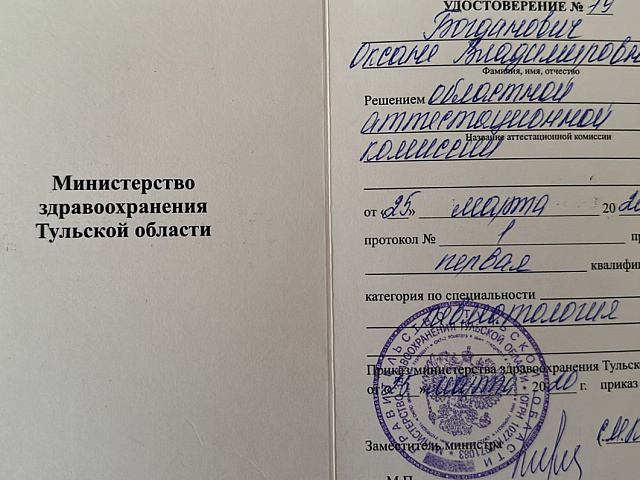 Министерство
здравоохранения
Тульской области
УДОСТОВЕРЕНИЕ № 19
Богданович
Оксане Владимировн
Фамилия, имя, отчество
Решением областной
аттестационной
Название аттестационной комиссии
комиссии
от «25» марта 20 20
протокол № 1 пр
первая квалифи
категория по специальности
Приказ министерства здравоохранения Тульско
от «25» марта 2020 г. приказ
Заместитель министра
М.П.